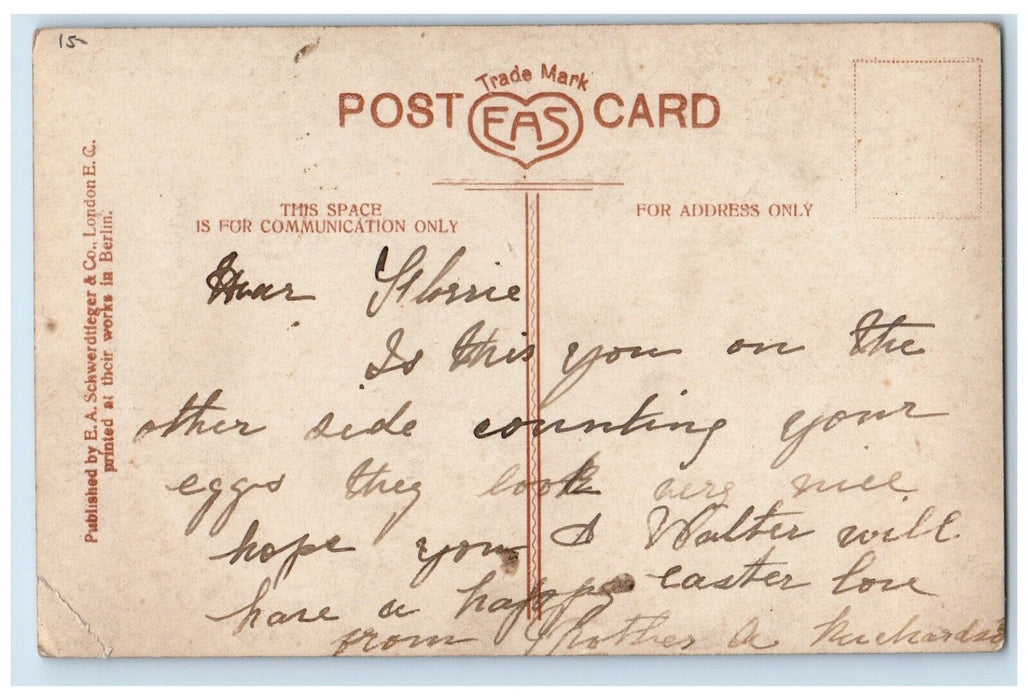 15-
Trade Mark
POST EAS CARD
THIS SPACE
IS FOR COMMUNICATION ONLY
FOR ADDRESS ONLY
Published by E. A. Schwerdtfeger & Co., London E. C.,
printed at their works in Berlin.
Dear Florrie
Is this you on the
other side counting your
eggs they look very nice
hope you & Walter will
have a happy easter love
from Mother A Richardson